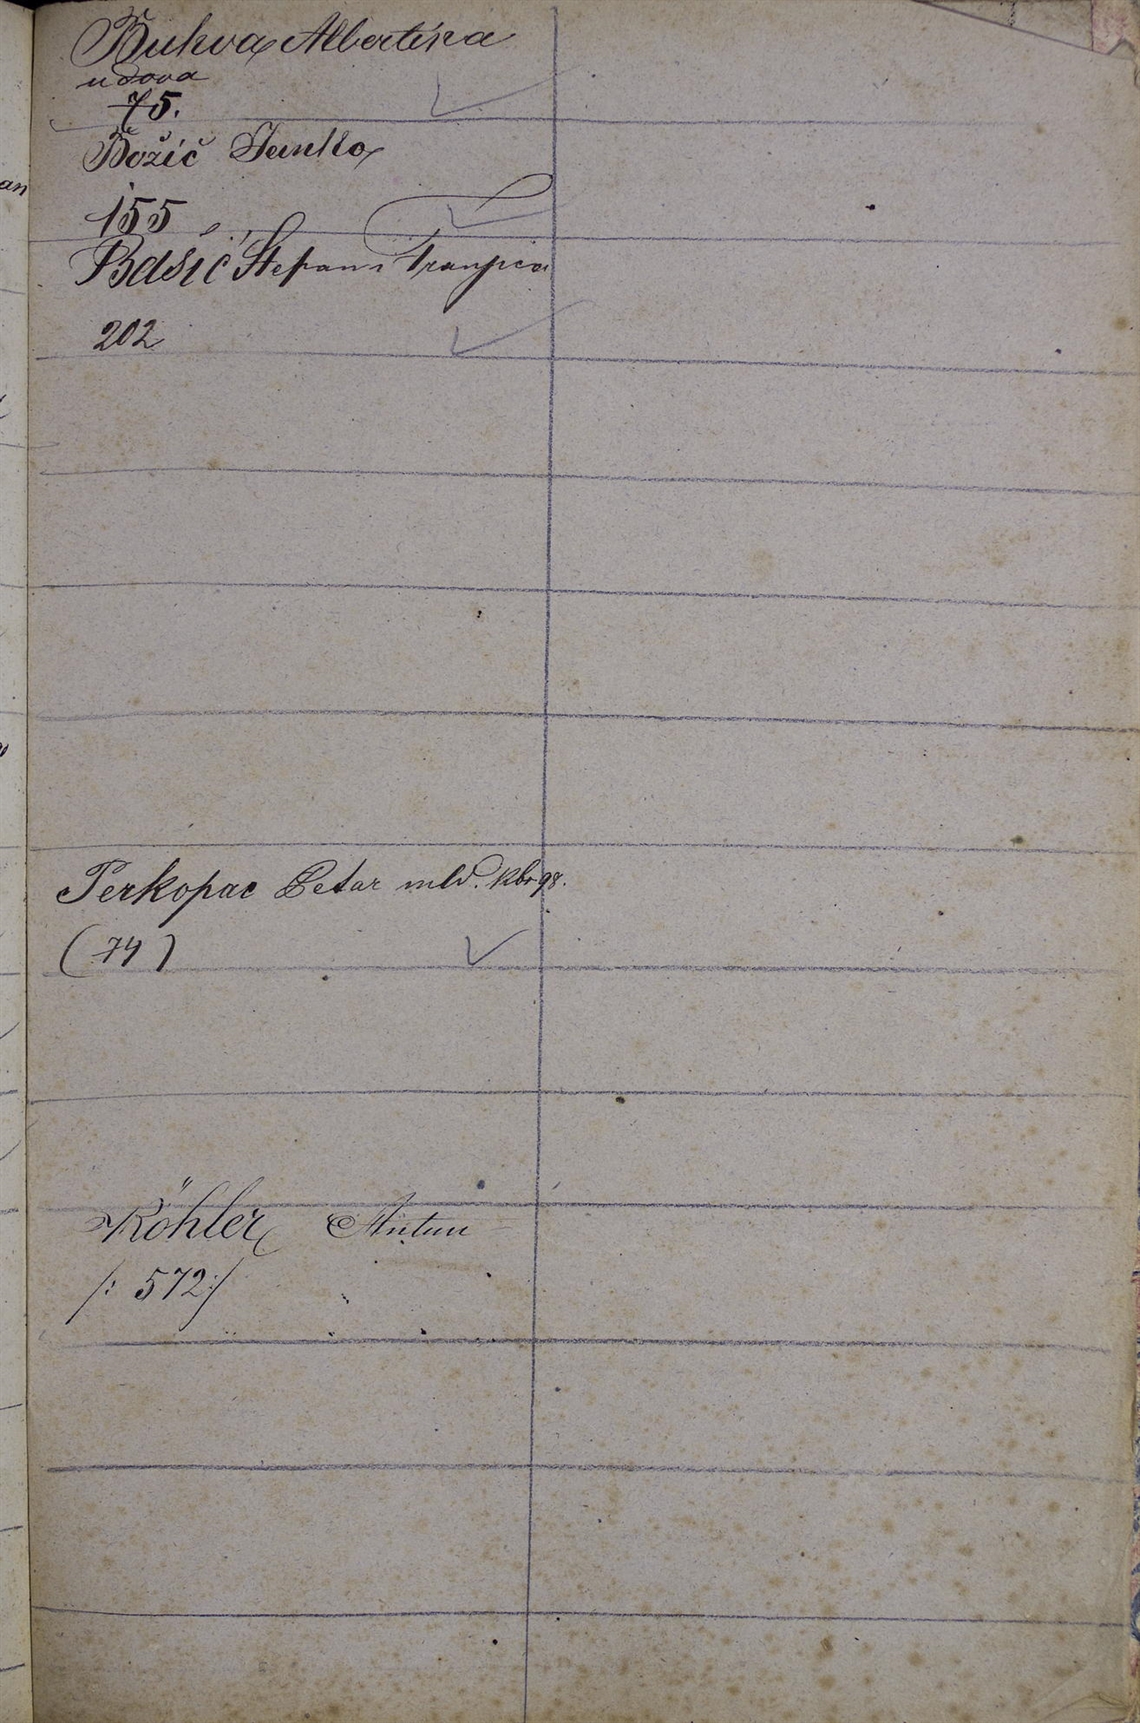 Bukva Albertina
udova
75.
Božić Janko
155
Bašić Stepan i Franjica
202
Perkopac Petar mld. kbr 98.
(74)
Köhler Antun
/: 572:/